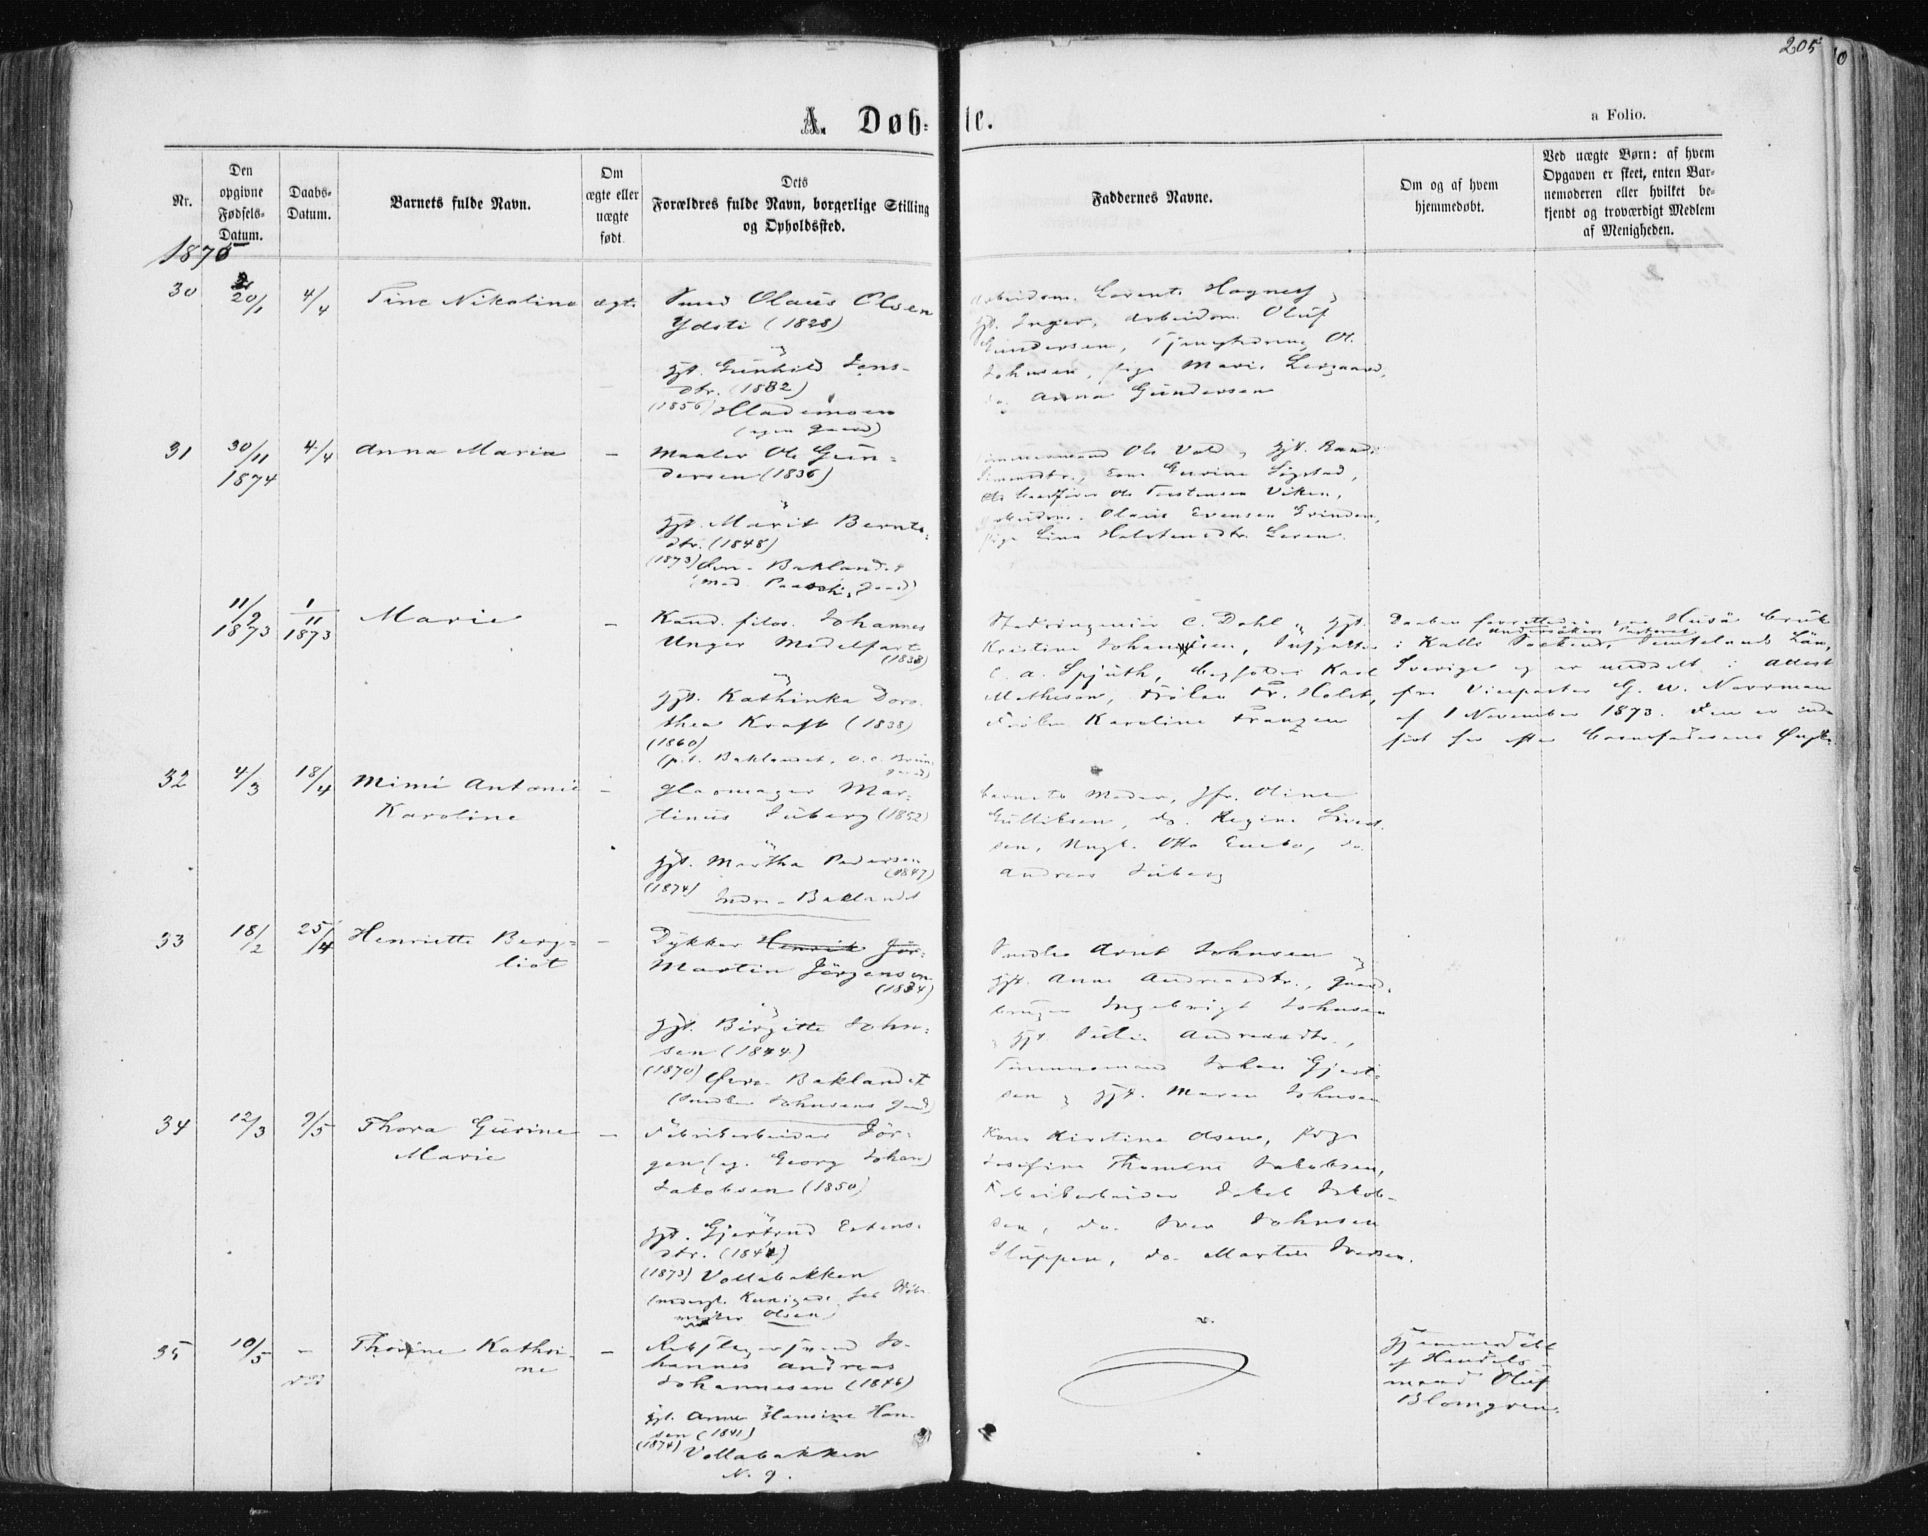 205
A. Døb-
te.
a Folio.
Nr.
Den
opgivne
Fødsels-
Datum.
Daabs-
Datum.
Barnets fulde Navn.
Om
ægte eller
uægte
født.
Dets
Forældres fulde Navn, borgerlige Stilling
og Opholdssted.
Faddernes Navne.
Om og af hvem
hjemmedøbt.
Ved uægte Børn: af hvem
Opgaven er skeet, enten Bar-
nemoderen eller hvilket be-
kjendt og troværdigt Medlem
af Menigheden.
1875
30 20/1 4/4 Tine Nikoline ægte
Svend Olaus Olsen
Ydsti (1828)
gft. Gunhild Jons-
dtr. (1832)
(1856) Hlademoen
(egen Gaard)
Arbeidsm. Lorents Hognes
gft. Inger, Arbeidsm. Oluf
Gundersen, Ol.
Johnsen, Pige Marie
do. Anna Gundersen
31 30/11 1874 4/4 Anna Maria —
Maaler Ole Gun-
dersen (1836)
gft. Marit Bernts-
dtr. (1848)
(1873) Øvre Baklandet
Tømmermand Ole Vold, gft. Randi
Simensdtr., Enke Gurine Sigstad,
Ole Torstensen Viken,
Arbeidsm. Olaus Evensen Grinden,
Pige Lina Halstensdtr. Leren.
11/9 1873 1/11 1873 Marie —
Kand. filos. Johannes
Unger Medelfart
(1838)
gft. Kathinka Doro-
thea Kraft (1838)
(1860)
(p.t. Baklandet, O. C. Bruns
Gaard)
Stadsingeniør C. Dahl, gft.
Kristine Johannsen,
C. A. Spjuth, Karl
Mathesen, Frøken Fr. Holst,
Frøken Karoline Franzen
Daaben forrettedes paa Huså bruk
i Kalls Socken, Undersåkers Pastorat, Jemtelands Län,
Sverige og er meddelt i Attest
fra Vicepastor G. W. Norrman
af 1 November 1873. Den er ind-
ført her efter Barnefaderens Ønske.
32 4/3 18/4 Mimi Antonie —
Karoline
Glasmager Mar-
tinus Juberg (1852)
gft. Martha Pedersen
(1847)
(1874) Indre-Baklandet
Barnets Moder, Jfr. Oline
Gulliksen, do. Regine Sivert-
sen, Ungk. Otto Enebo, do.
Andreas Juberg
33 18/2 25/4 Henriette Berg- —
liot
Dykker Henrik Jør-
Martin Jörgensen
(1834)
gft. Birgitte John-
sen (1844)
(1870) Øvre Baklandet
(Snedker Johnsens Gaard)
Snedker Arnt Johnsen
gft. Anne Andreasdtr., Gaard-
bruger Ingebrigt Johnsen
gft. Andreasdtr.,
Tømmermand Johan Gjert-
sen, gft. Maren Johnsen
34 12/3 9/5 Thora Gurine —
Marie
Fabrikarbeider Jör-
gen (eg. Georg Johan)
Jakobsen (1850)
gft. Gjertrud Estens-
dtr.
(1873) Vollabakken
Olsen)
Kone Kirstine Olsen, Pige
Josefine Thomine Jakobsen,
Fabrikarbeider Jakob Jakob-
sen, do. Iver Johnsen
Sluppen, do. Martin Iversen.
35 10/5 — Thorine Kathri- —
ne
død
Rebslagersvend Jo-
hannes Andreas
Johannesen (1846)
gft. Anne Hansine Han-
sen (1841)
(1874) Vollabakken
N. 9.
Hjemmedöbt
af Handels-
mand Oluf
Blomgren.